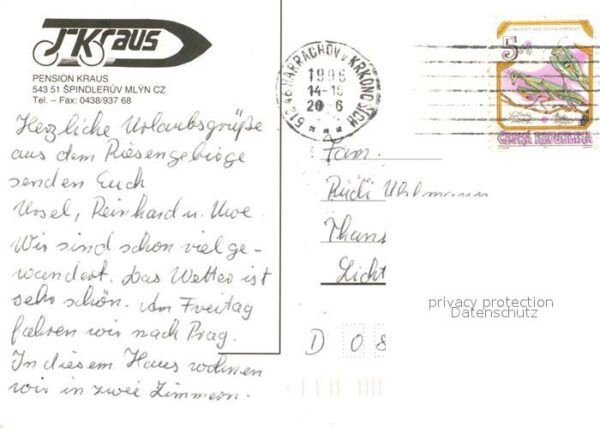 JKraus
PENSION KRAUS
543 51 ŠPINDLERŮV MLÝN CZ
Tel. – Fax: 0438/937 68
Herzliche Urlaubsgrüße
aus dem Riesengebirge
senden Euch
Ursel, Reinhard u. Uwe.
Wir sind schon viel ge-
wandert. Das Wetter ist
sehr schön. Am Freitag
fahren wir nach Prag.
In diesem Haus wohnen
wir in zwei Zimmern.
512 46 HARRACHOV V KRKONOŠÍCH
1996
14-15
20 6
5
ČESKÁ REPUBLIKA
Fam.
Rudi
Licht
D 08
privacy protection
Datenschutz